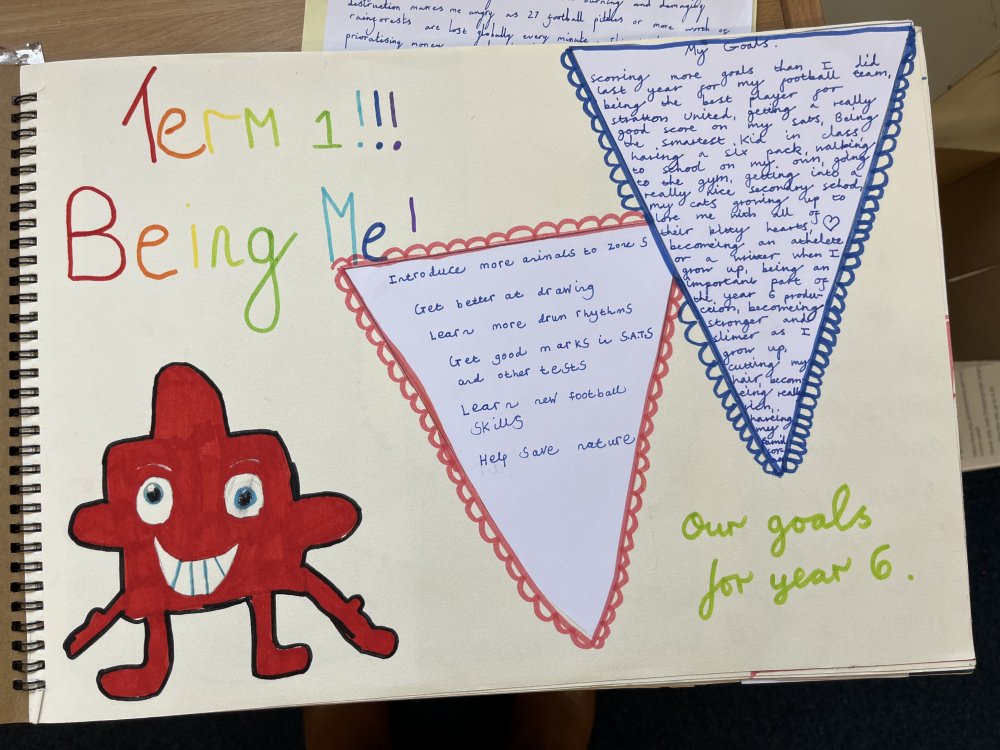 destruction makes me angry as 27 football pitches or more worth of
rainforests are lost globally every minute
prioratising money
Term 1!!!
Being Me!
Introduce more animals to zone 5
Get better at drawing
Learn more drum rhythms
Get good marks in S.A.T.S
and other tests
Learn new football
skills
Help save nature
My Goals.
scoring more goals than I did
last year for my football team,
being the best player for
stratton united, getting a really
good score on my sats, Being
the smartest kid in class,
having a six pack, walking
to school on my own, going
to the gym, getting into a
really nice secondry school,
my cats growing up to
love me with all of
their kitty hearts, ♡
becomeing an athelete
or a writer when I
grow up, being an
important part of
the year 6 produ-
ction, becomeing
stronger and
slimer as I
grow up,
cutting my
hair, becom
eing really
rich,
haveing
my
Our goals
for year 6.